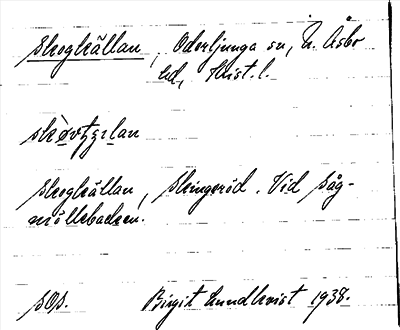 Skogkällan, Oderljunga sn, N. Åsbo
hd, Krist. l.
Skogkällan, Skingeröd. Vid såg-
möllebacken.
Birgit Lundkvist 1938.